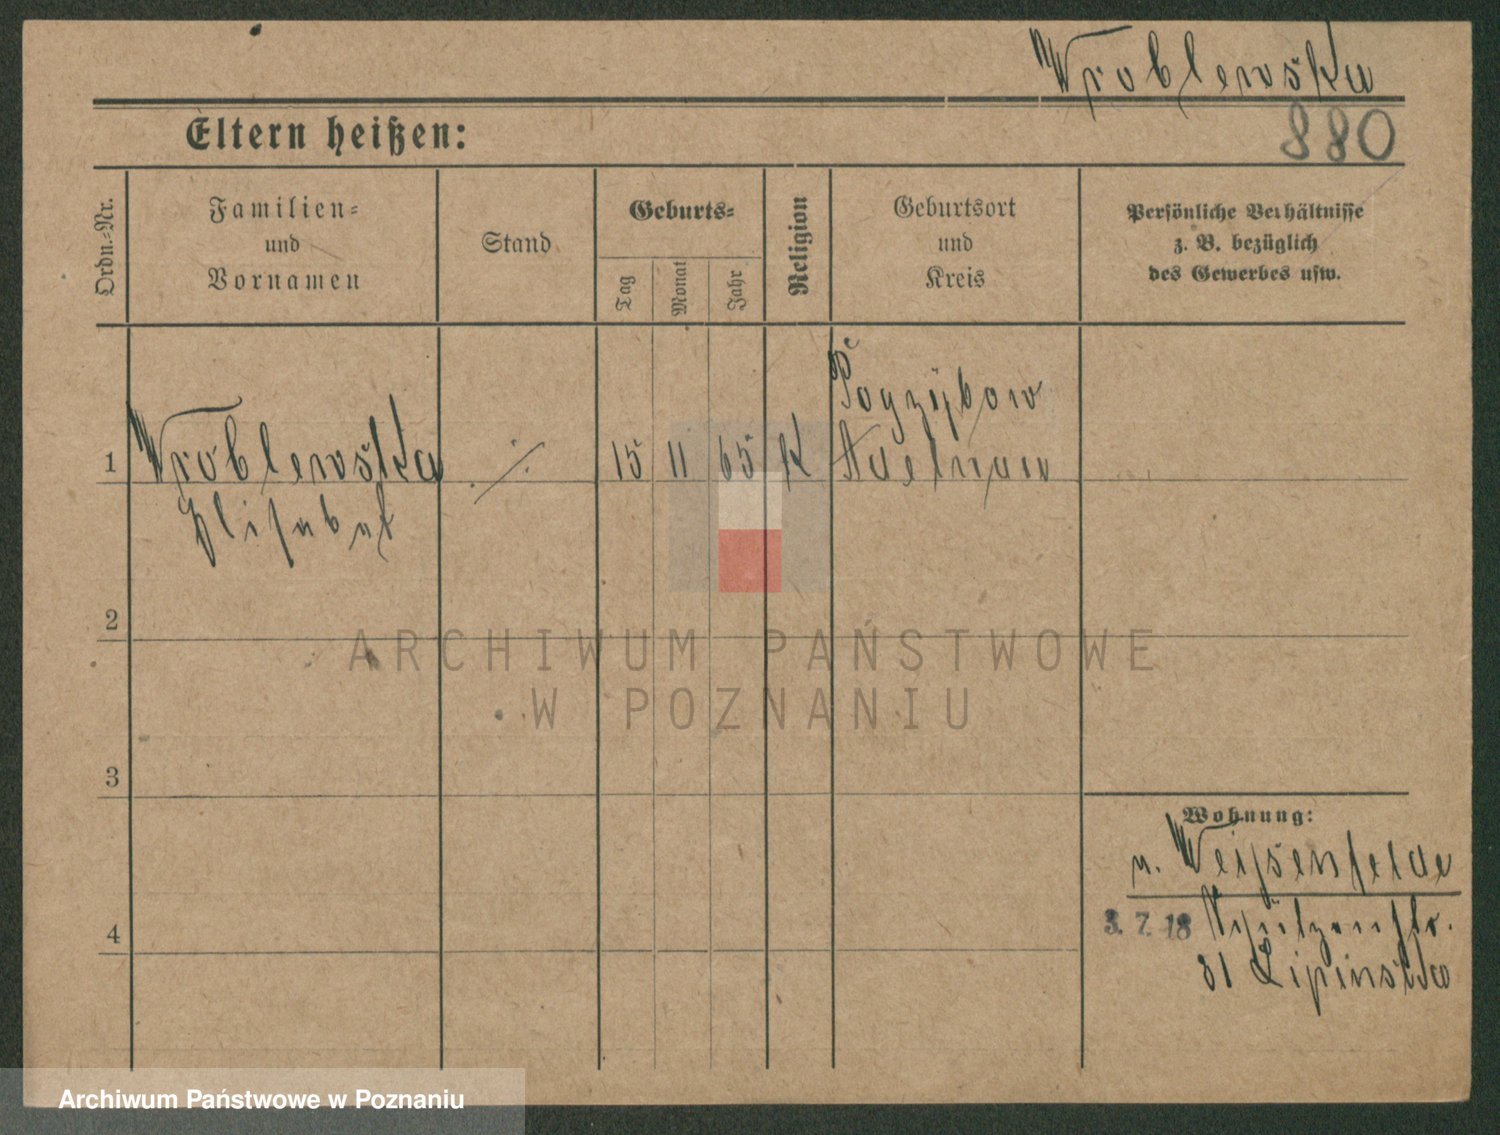 Wróblewska
880
Eltern heißen:
Ordn.-Nr.
Familien-
und
Vornamen
Stand
Geburts-
Tag
Monat
Jahr
Religion
Geburtsort
und
Kreis
Persönliche Verhältnisse
z. B. bezüglich
des Gewerbes usw.
1
Wróblewska
Elisabet
./.
15
11
65
K
Pogrzybow
Adelnau
2
3
4
Wohnung:
n. Weißenfelde
3. 7. 18 Schützenstr.
31 Lipinska
ARCHIWUM PAŃSTWOWE
W POZNANIU
Archiwum Państwowe w Poznaniu